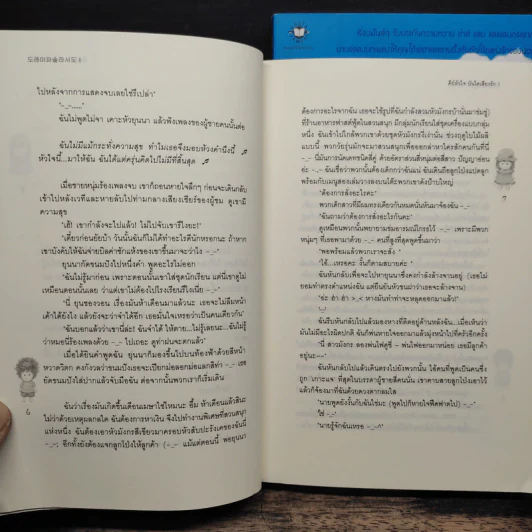 โดเรมีฟาซอลลาซิโด 6
ไปหลังจากการแสดงจบเลยใช่รึเปล่า"
"-_-....."
ฉันไม่พูดไม่จา เคาะหัวยุนนา แล้วฟังเพลงของผู้ชายคนนั้นต่อ
ฉันไม่เรียนแม้กระทั่งความสุข ทำไมเธอจึงมอบห้วงคำนึงนี้ ♬
หัวใจนี้...มาให้ฉัน ฉันได้แต่ครุ่นคิดไปไม่มีที่สิ้นสุด ♬
เมื่อชายหนุ่มร้องเพลงจบ เขาก็ถอนหายใจลึกๆ ก่อนจะเดินกลับ
เข้าไปหลังเวทีและหายลับไปท่ามกลางเสียงเชียร์ของผู้ชม ดูเขามี
ความสุข
"เฮ้! เขากำลังจะไปแล้ว! ไม่ไปจับเขารึไงยะ!"
"เดี๋ยวก่อนยัยบ้า วันนั้นฉันก็ไม่ได้ทำอะไรดีนักหรอกนะ ถ้าหาก
เขาบังคับให้ฉันจ่ายบิลค่าซักแห้งของเขาขึ้นมาจะว่าไง -_-"
ยุนนากัดขนมปังไปหนึ่งคำ พูดอะไรไม่ออก
"ฉันไม่รู้มาก่อน เพราะตอนนั้นเขาใส่ชุดนักเรียน แต่นี่เขาดูไม่
เหมือนตอนนั้นเลย ว่าแต่เขาไม่ต้องไปโรงเรียนรึไงเนี่ย -_-"
"นี่ ยุนของวอน เรื่องมันห้าเดือนมาแล้วนะ เธอจะไม่ลืมหน้า
เค้าได้ยังไง แล้วยังจะว่าจำได้อีก เธอมั่นใจเหรอว่าเป็นคนเดียวกัน"
"ฉันบอกแล้วว่าเขานี่ล่ะ! ฉันจำได้ ให้ตาย...ไม่รู้เลยนะ...ฉันไม่รู้
ว่าหมอนี่ร้องเพลงด้วย -_- ไปเถอะ ดูท่าฝนจะตกแล้ว"
เมื่อได้ยินคำพูดฉัน ยุนนาก็มองขึ้นไปบนท้องฟ้าด้วยสีหน้า
หวาดวิตก คงกังวลว่าขนมปังเธอจะเปียกม่อลอกม่อแลกสิท่า -_- เธอ
ยัดขนมปังใส่ปากแล้วขยับมือฉัน ต่อจากนั้นพวกเราก็เริ่มเดิน
ฉันว่าเรื่องมันเกิดขึ้นเดือนเมษาใช่ไหมนะ อืม ห้าเดือนแล้วสินะ
ไม่ว่าด้วยเหตุผลกลใด ฉันต้องการหาเงิน จึงไปทำงานพิเศษที่สวนสนุก
แห่งหนึ่ง ฉันต้องเอาหัวมังกรสีเขียวมาครอบหัวสับปะรังเคของฉันนี้
-_-; อีกทั้งยังต้องแจกลูกโป่งให้ลูกค้า (-_- แม้แต่ตอนนี้ พอยุนนา
6
คีย์หัวใจ บันไดเสียงรัก 1
ต้องการอะไรจากฉัน เธอจะใช้รูปที่ฉันกำลังสวมหัวมังกรบ้านั่นมาข่มขู่)
ที่ร้านอาหารฟาสต์ฟู้ดในสวนสนุก มีกลุ่มนักเรียนใส่ชุดเครื่องแบบกลุ่ม
หนึ่ง ฉันเข้าไปใกล้พวกเขาด้วยชุดหัวมังกรงี่เง่านั่น ช่วงฤดูใบไม้ผลิ
แบบนี้ พวกวัยรุ่นมักจะมาสวนสนุกเพื่อออกล่าหาใครสักคนกันที่นี่
-_- นี่มันการนัดเดทชนิดคี่คู่ ด้วยอัตราส่วนสี่หนุ่มต่อสี่สาว ปัญญาอ่อน
อ่ะ -_- ฉันเชื่อว่าพวกนั้นต้องเด็กกว่าฉันแน่ ฉันเดินถือลูกโป่งแปดลูก
พร้อมกับเมนูสองเล่มวางลงบนโต๊ะพวกเขาดังป้าบใหญ่
"ต้องการสั่งอะไรคะ"
พวกเด็กสาวที่มีผมทรงเดียวกันหมดนั่นหันมาจ้องฉัน -_-
"ฉันถามว่าต้องการสั่งอะไรกันคะ"
ดูเหมือนพวกนั้นพยายามข่มอารมณ์โกรธไว้ -_- เพราะมีพวก
หนุ่มๆ ที่เธอพามาด้วย -_- คนที่สูงที่สุดพูดขึ้นมาว่า
"ขอพร้อมแล้วพวกเราจะสั่ง"
"ได้...เหรอคะ งั้นก็ตามสบายค่ะ"
ฉันหันกลับเพื่อจะไปหายุนนาซึ่งคงกำลังล้างจานอยู่ (เธอไม่
ยอมทำตรงตำแหน่งฉัน แต่ยืนยันหัวชนฝาว่าเธอจะล้างจาน)
"อ่ะ ฮ่า ฮ่า >_< หางมันทำท่าจะหลุดออกมาแล้ว!"
"-_-!"
ฉันรีบหันกลับไปแล้วมองหางที่ติดอยู่ด้านหลังฉัน...เมื่อเห็นว่า
มันไม่มีอะไรผิดปกติ ฉันก็พ่นหายใจออกมาแล้วมุ่งหน้าไปที่ครัวอีกครั้ง
"นี่ สาวมังกร ลองพ่นไฟดูซี่ - พ่นไฟออกมาหน่อย เธอมีลูกค้า
อยู่นะ—"
ฉันหันกลับไปแล้วเดินตรงไปยังพวกนั้น ไอ้คนที่พูดเป็นคนซึ่ง
ถูก 'เกาะแจะ' ที่สุดในบรรดาผู้ชายสี่คนนั้น เขาคาบสายลูกโป่งเอาไว้
แล้วก็จ้องมาที่ฉันด้วยดวงตากลมใส
"นายพูดยังงั้นกับฉันใช่มะ (พูดไปก็หายใจฟืดฟาดไป) -_-"
"ใช่ -_-"
"นายรู้จักฉันเหรอ -_-^"
7